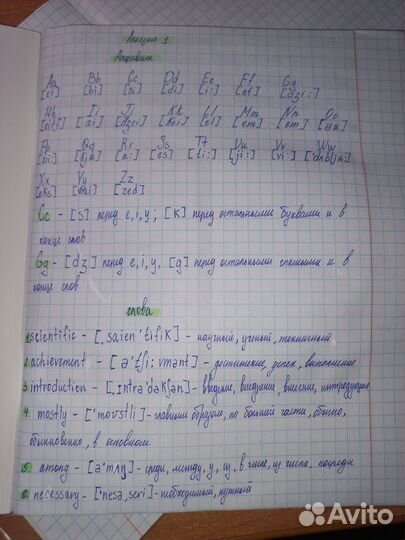 Лекция 1
Алфавит
Aa Bb Cc Dd Ee Ff Gg
[ei] [bi] [si] [di] [i:] [ef] [dzi:]
Hh Ii Jj Kk Ll Mm Nn Oo
[eitʃ] [ai] [dzei] [kei] [el] [em] [em] [əʊ]
Pp Qq Rr Ss Tt Uu Vv Ww
[pi:] [kju] [a:] [es] [ti:] [ju:] [vi:]
Xx Yy Zz
[eks] [wai] [zed]
Cc - [s] перед e, i, y; [k] перед остальными буквами и в
конце слов
Gg - [dʒ] перед e, i, y, [g] перед остальными гласными и в
конце слов
слова
1. scientific - [ˌsaien'tifik] - научный, ученый, техничный
2. achievement - [ə'tʃi:vmənt] - достижение, успех, выполнение
3. introduction - [ˌıntrə'dʌkʃən] - введение, внесение, интродукция
4. mostly - ['moʊstli] - главным образом, по большей части, обычно,
обыкновенно, в основном
5. among - [ə'mʌŋ] - среди, между, у, из, в числе, из числа, посреди
6. necessary - ['nesəˌseri] - необходимый, нужный
Avito